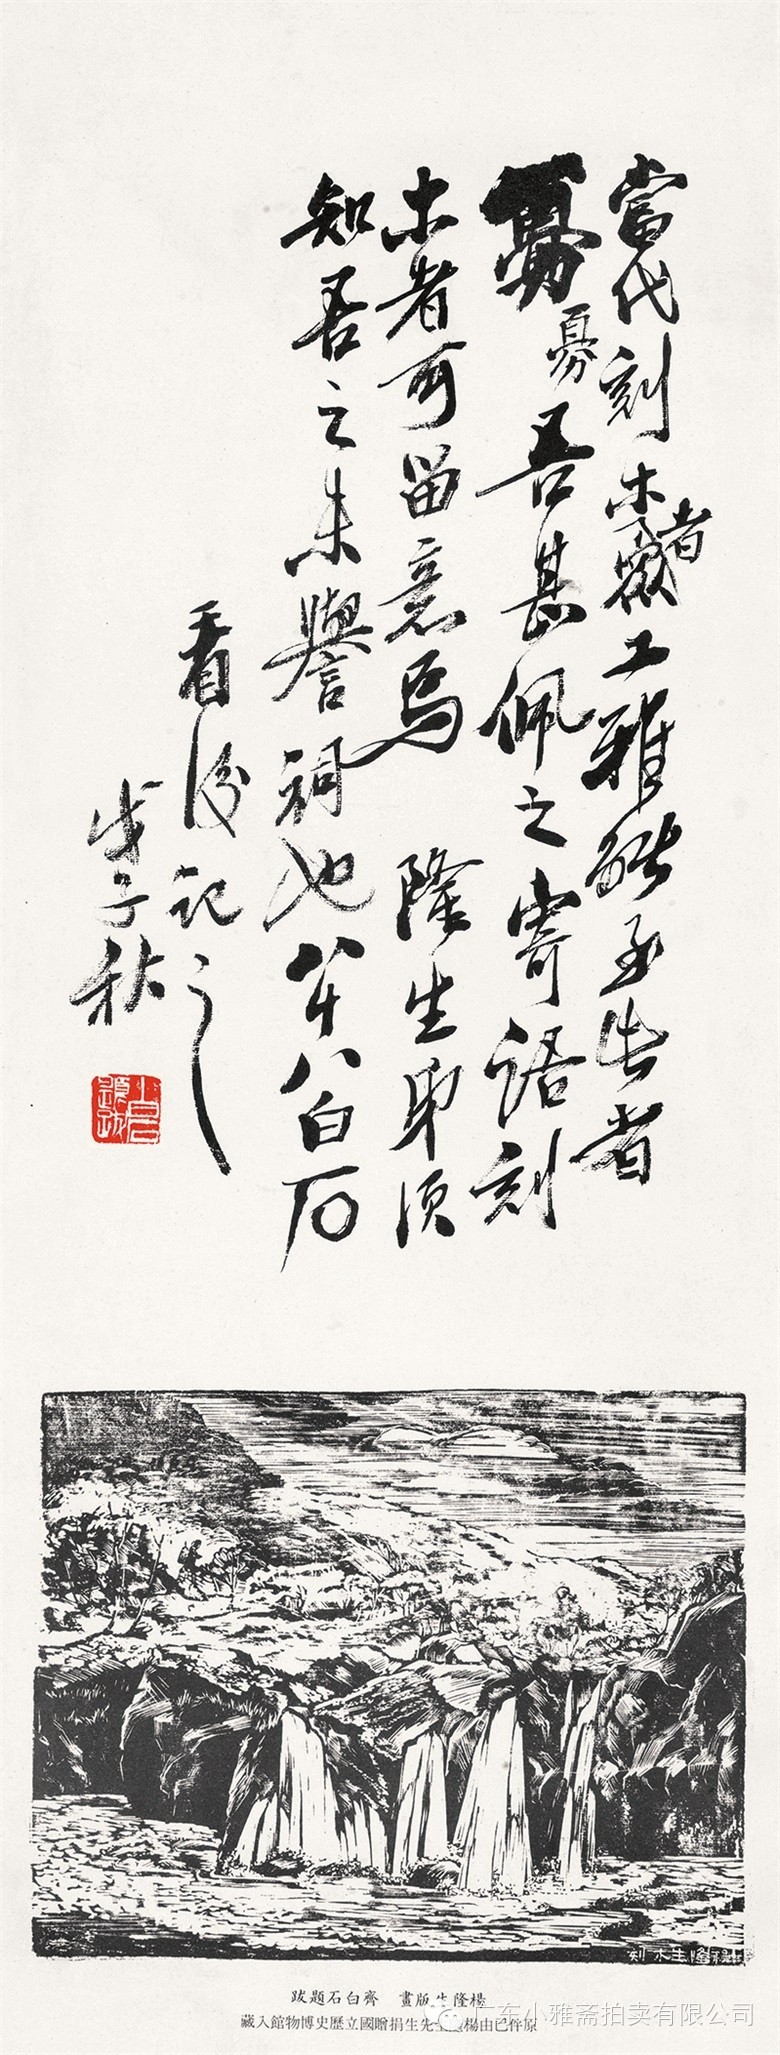 當代刻木者工雅能至此者
寡寡吾甚佩之寄語刻
木者可留意焉 隆生弟須
知吾之未譽詞也 八十八白石
看後記之
戊子秋
題跋
楊隆生木刻
楊隆生版畫 齊白石題跋
原件已由楊生先生捐贈國立歷史博物館入藏
广东小雅斋拍卖有限公司